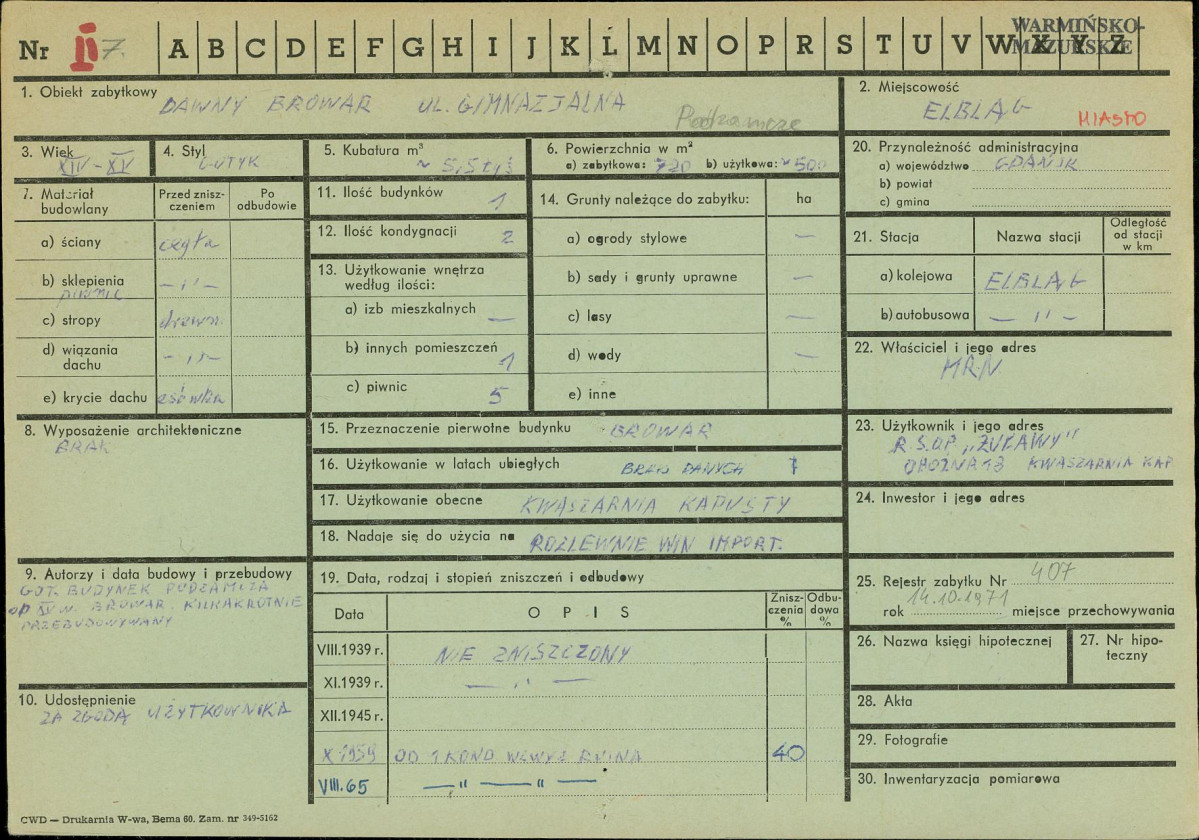 Nr II 7. A B C D E F G H I J K Ł M N O P R S T U V W X Y Z
WARMIŃSKO-
MAZURSKIE
1. Obiekt zabytkowy DAWNY BROWAR UL. GIMNAZJALNA
Podzamcze
2. Miejscowość
ELBLĄG MIASTO
3. Wiek
XIV – XV
4. Styl
GOTYK
5. Kubatura m³
~ 5,5 tyś
6. Powierzchnia w m²
a) zabytkowa: 720 b) użytkowa: ~500
7. Materiał budowlany
Przed zniszczeniem
Po odbudowie
a) ściany cegła
b) sklepienia piwnic – „ –
c) stropy drewn.
d) wiązania dachu – „ –
e) krycie dachu esówka
8. Wyposażenie architektoniczne
BRAK
9. Autorzy i data budowy i przebudowy
GOT. BUDYNEK PODZAMCZA
OD XV W. BROWAR. KILKAKROTNIE
PRZEBUDOWYWANY
10. Udostępnienie
ZA ZGODĄ UŻYTKOWNIKA
11. Ilość budynków 1
12. Ilość kondygnacji 2
13. Użytkowanie wnętrza
według ilości:
a) izb mieszkalnych —
b) innych pomieszczeń 1
c) piwnic 5
14. Grunty należące do zabytku: ha
a) ogrody stylowe —
b) sady i grunty uprawne —
c) lasy —
d) wody —
e) inne
15. Przeznaczenie pierwotne budynku BROWAR
16. Użytkowanie w latach ubiegłych BRAK DANYCH
17. Użytkowanie obecne KWASZARNIA KAPUSTY
18. Nadaje się do użycia na ROZLEWNIE WIN IMPORT.
19. Data, rodzaj i stopień zniszczeń i odbudowy
Data
OPIS
Zniszczenia %
Odbudowa %
VIII.1939 r. NIE ZNISZCZONY
XI.1939 r. — „ —
XII.1945 r.
X 1959 OD 1 KOND WZWYŻ RUINA 40
VIII.65 — „ — „ —
20. Przynależność administracyjna
a) województwo GDAŃSK
b) powiat
c) gmina
21. Stacja
Nazwa stacji
Odległość od stacji w km
a) kolejowa ELBLĄG
b) autobusowa — „ —
22. Właściciel i jego adres
MRN
23. Użytkownik i jego adres
R.S.O.P. „ŻUŁAWY"
KWASZARNIA KAP
24. Inwestor i jego adres
25. Rejestr zabytku Nr 407
rok 14.10.1971 miejsce przechowywania
26. Nazwa księgi hipotecznej
27. Nr hipoteczny
28. Akta
29. Fotografie
30. Inwentaryzacja pomiarowa
CWD — Drukarnia W-wa, Bema 60. Zam. nr 349-5162